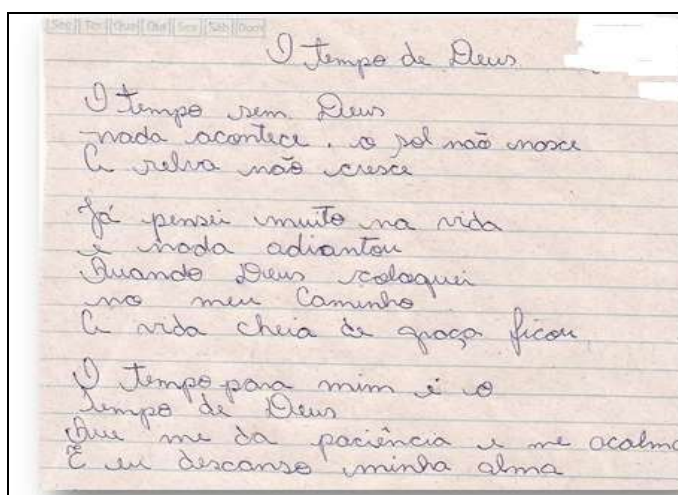 Seg Ter Qua Qui Sex Sáb Dom
O tempo de Deus
O tempo sem Deus
nada acontece, o sol não nasce
A relva não cresce
Já pensei muito na vida
e nada adiantou
Quando Deus coloquei
no meu Caminho
A vida cheia de graça ficou
O tempo para mim é o
tempo de Deus
Que me da paciência e me acalma
E eu descanso minha alma